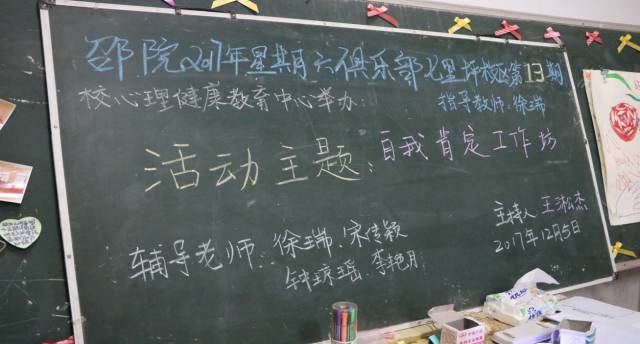 邵院2017年星期六俱乐部七里坪校区第13期
校心理健康教育中心举办: 指导教师:徐瑞
活动主题:自我肯定工作坊
辅导老师:徐瑞、宋传颖
钟琼瑶、李艳月
主持人:王淞杰
2017年12月5日